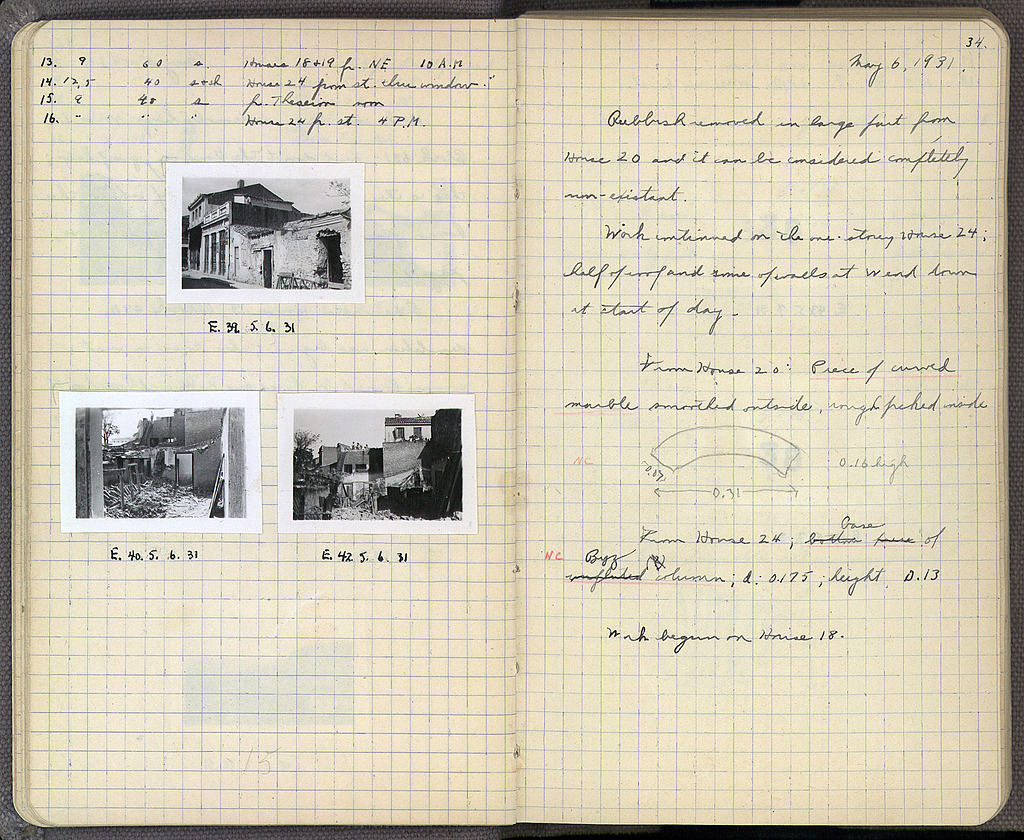 13. 9 60 s. Houses 18+19 fr. NE 10 A.M
14. 12,5 40 s+sh House 24 from st. thru window "
15. 9 48 s fr. Theseion noon
16. " " " House 24 fr. st. 4 P.M.
E. 39. 5. 6. 31
E. 40. 5. 6. 31
E. 42. 5. 6. 31
15
34.
May 6, 1931.
Rubbish removed in large part from
House 20 and it can be considered completely
non-existant.
Work continued on the one-storey House 24;
half of roof and some of walls at W end down
at start of day.
From House 20: Piece of curved
marble smoothed outside, rough picked inside
NC 0.07 0.31 0.16 high
base
From House 24; of
NC Byz
unfluted column; d: 0.175; height 0.13
Work begun on House 18.